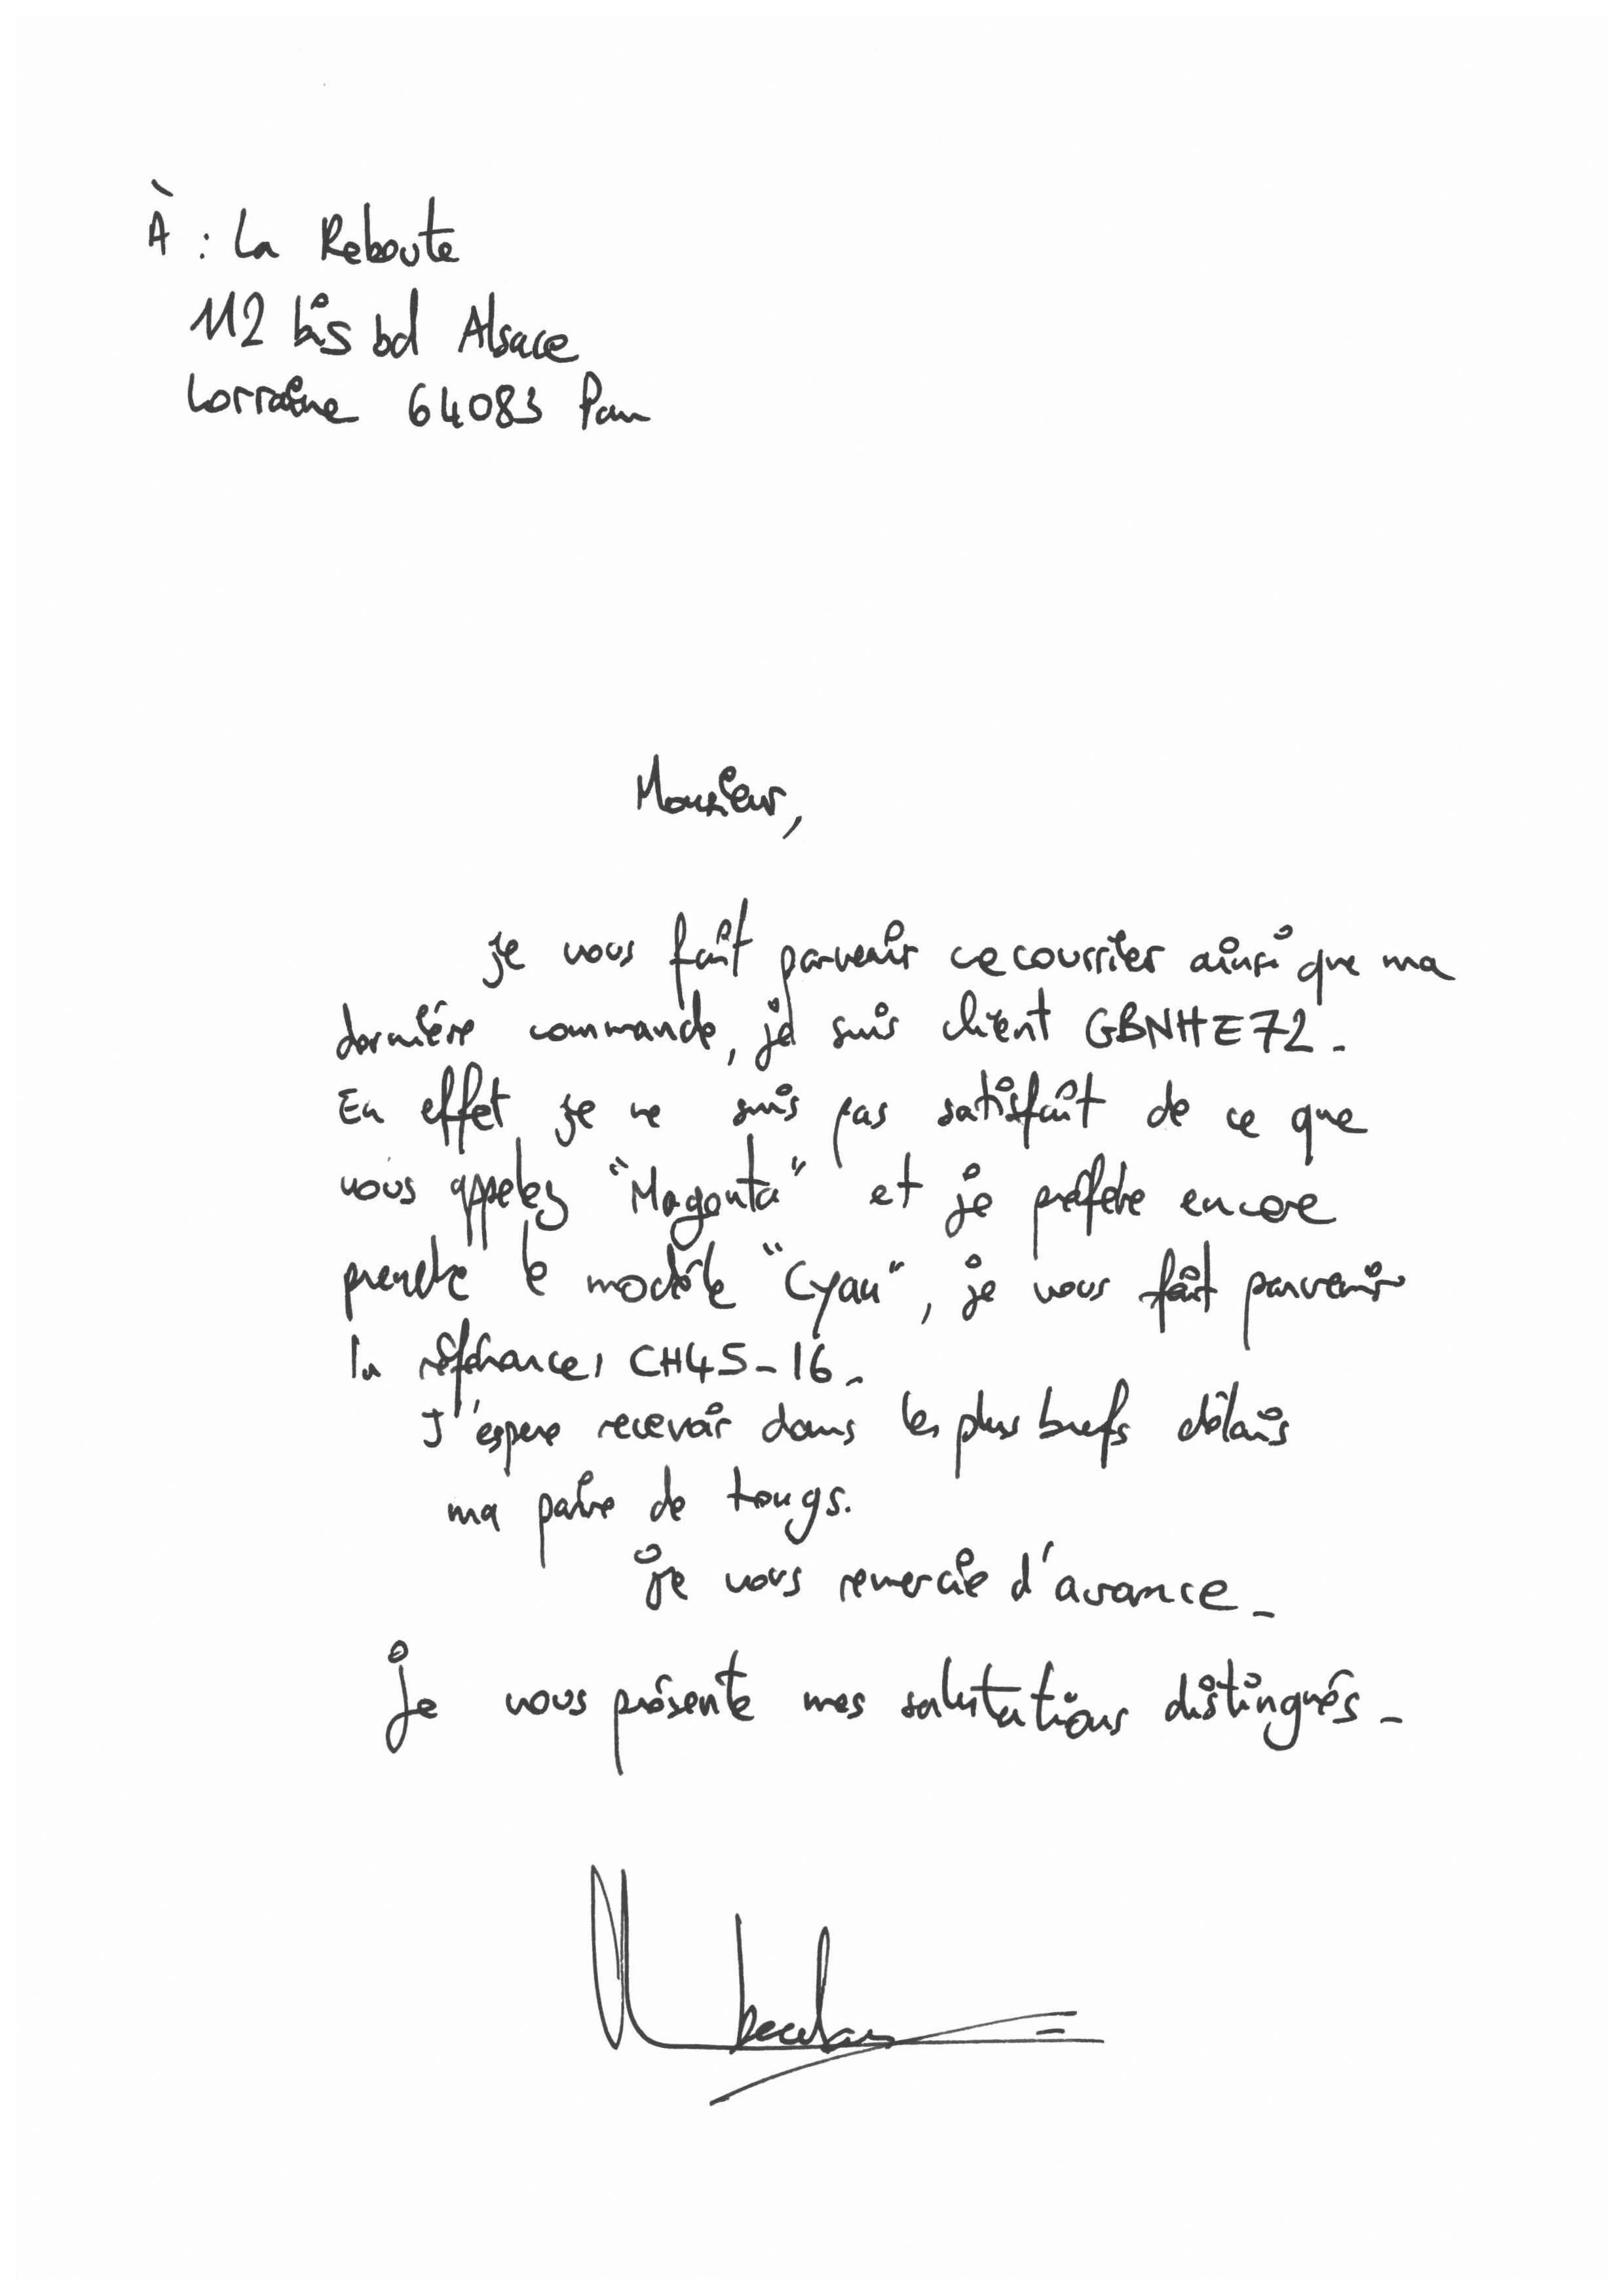 À : La Reboute
112 bis bd Alsace
Lorraine 64083 Pau
Monsieur,
je vous fait parvenir ce courrier ainsi que ma
dernière commande, je suis client GBNHE72.
En effet je ne suis pas satisfait de ce que
vous appelez "Magenta" et je préfère encore
prendre le modèle "Cyan", je vous fait parvenir
la référance, CH45-16.
J'espere recevoir dans les plus brefs délais
ma paire de tongs.
je vous remercie d'avance.
je vous présente mes salutations distingués.